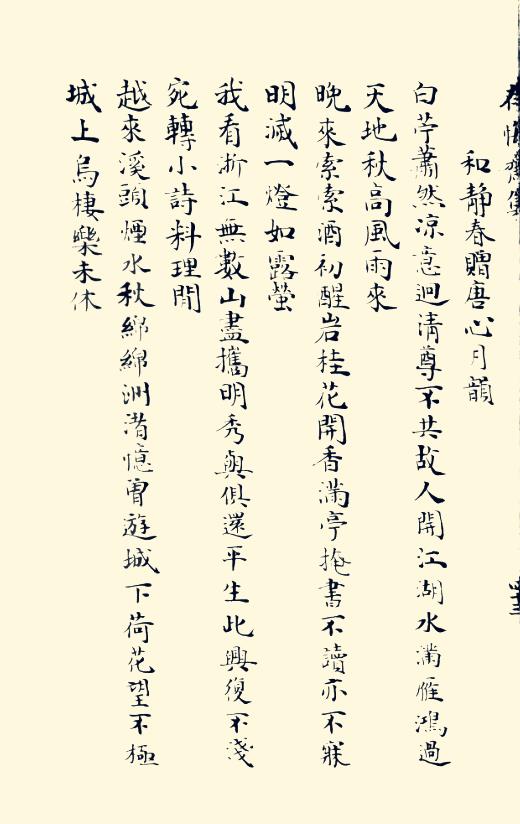 和靜春贈唐心月韻
白苧蕭然凉意迥清尊不共故人開江湖水滿雁鴻過
天地秋高風雨來
晚來索索酒初醒岩桂花開香滿亭掩書不讀亦不寐
明滅一燈如露螢
我看浙江無數山盡攜明秀與俱還平生此興復不淺
宛轉小詩料理閒
越來溪頭煙水秋綿綿洲渚憶曾遊城下荷花望不極
城上烏棲樂未休